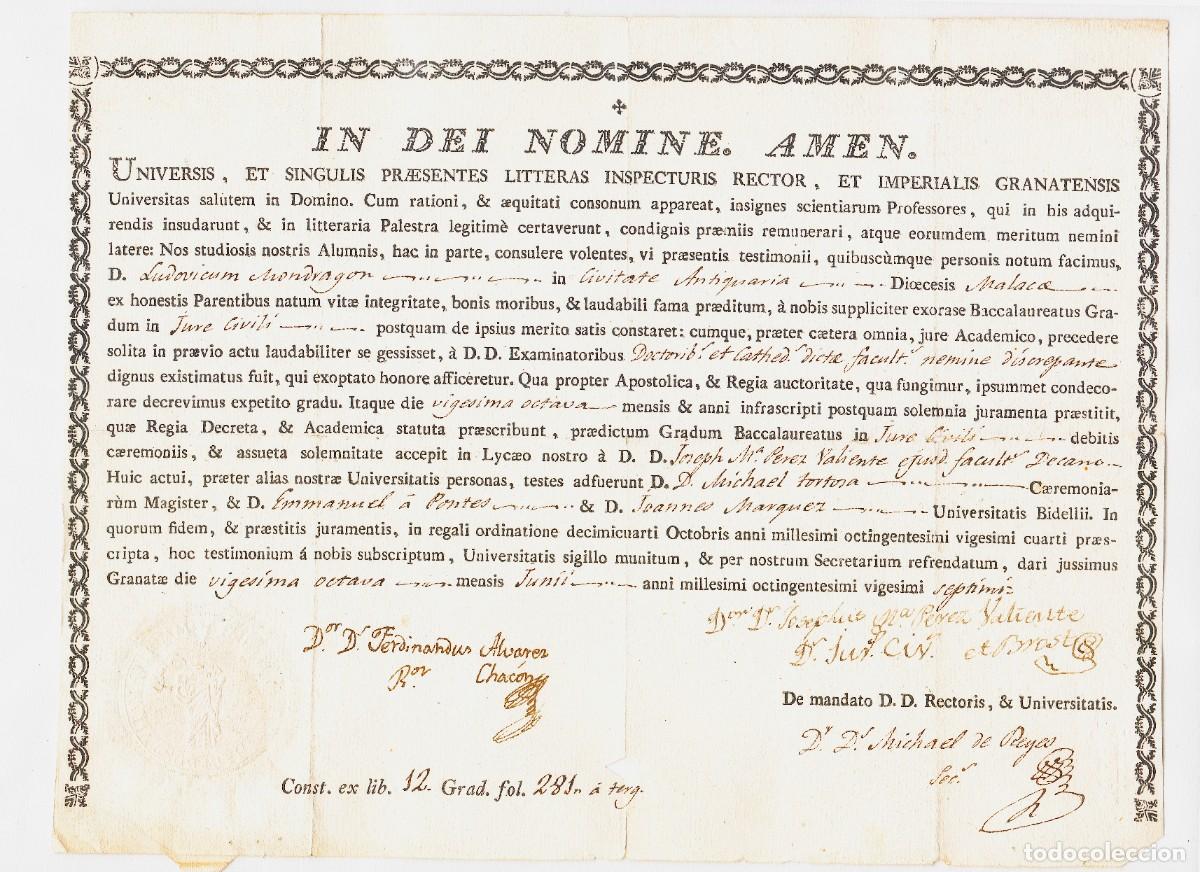 ✠
IN DEI NOMINE. AMEN.
UNIVERSIS, ET SINGULIS PRÆSENTES LITTERAS INSPECTURIS RECTOR, ET IMPERIALIS GRANATENSIS
Universitas salutem in Domino. Cum rationi, & æquitati consonum appareat, insignes scientiarum Professores, qui in his adqui-
rendis insudarunt, & in litteraria Palestra legitimè certaverunt, condignis præmiis remunerari, atque eorumdem meritum nemini
latere: Nos studiosis nostris Alumnis, hac in parte, consulere volentes, vi præsentis testimonii, quibuscùmque personis notum facimus,
D. Ludovicum Mondragon in Civitate Antiquaria Diœcesis Malacæ
ex honestis Parentibus natum vitæ integritate, bonis moribus, & laudabili fama præditum, à nobis suppliciter exorase Baccalaureatus Gra-
dum in Jure Civili postquam de ipsius merito satis constaret: cumque, præter cætera omnia, jure Academico, precedere
solita in prævio actu laudabiliter se gessisset, à D. D. Examinatoribus Doctorib.s et Cathed.s dictæ facult.s nemine discrepante
dignus existimatus fuit, qui exoptato honore afficeretur. Qua propter Apostolica, & Regia auctoritate, qua fungimur, ipsummet condeco-
rare decrevimus expetito gradu. Itaque die vigesima octava mensis & anni infrascripti postquam solemnia juramenta præstitit,
quæ Regia Decreta, & Academica statuta præscribunt, prædictum Gradum Baccalaureatus in Jure Civili debitis
cæremoniis, & assueta solemnitate accepit in Lycæo nostro à D. D. Joseph M.a Perez Valiente ejusd. facult.s Decano
Huic actui, præter alias nostræ Universitatis personas, testes adfuerunt D. D. Michael tortosa Cæremonia-
rùm Magister, & D. Emmanuel á Pontes & D. Joannes Marquez Universitatis Bidellii. In
quorum fidem, & præstitis juramentis, in regali ordinatione decimicuarti Octobris anni millesimi octingentesimi vigesimi cuarti præs-
cripta, hoc testimonium á nobis subscriptum, Universitatis sigillo munitum, & per nostrum Secretarium refrendatum, dari jussimus
Granatæ die vigesima octava mensis Junii anni millesimi octingentesimi vigesimi septimi
D.or D.n Josephus M.a Perez Valiente
D.r Jur. Civ. et Brost
D.or D.n Ferdinandus Alvarez
R.or Chacón
De mandato D. D. Rectoris, & Universitatis.
D.r D.n Michael de Reyes
Sec.s
Const. ex lib. 12. Grad. fol. 281 á terg.
todocoleccion